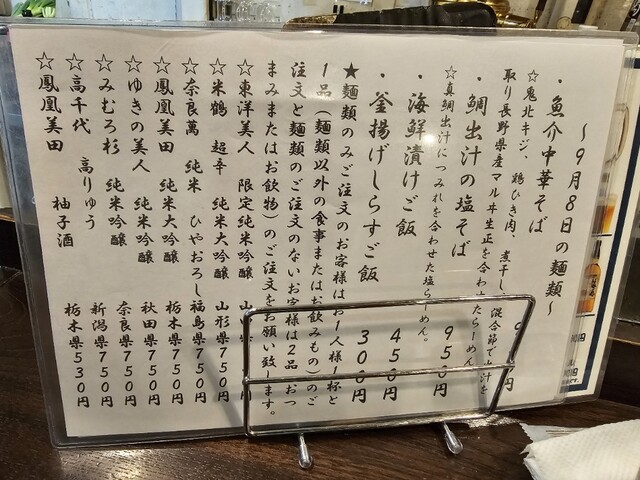 ～９月８日の麺類～
・魚介中華そば
９　　円
☆鬼北キジ、鶏ひき肉、煮干し、混合節で出汁を
取り長野県産マルヰ生正を合わせたらーめん。
・鯛出汁の塩そば
９５０円
☆真鯛出汁につみれを合わせた塩らーめん。
・海鮮漬けご飯　４５０円
・釜揚げしらすご飯　３００円
★麺類のみご注文のお客様はお１人様１杯と
１品（麺類以外の食事またはお飲みもの）のご
注文と麺類のご注文のないお客様は２品（おつ
まみまたはお飲物）のご注文をお願い致します。
☆東洋美人　限定純米吟醸　山口県
☆米鶴　超辛　純米大吟醸　山形県７５０円
☆奈良萬　純米　ひやおろし　福島県７５０円
☆鳳凰美田　純米大吟醸　栃木県７５０円
☆ゆきの美人　純米吟醸　秋田県７５０円
☆みむろ杉　純米吟醸　奈良県７５０円
☆高千代　高りゅう　新潟県７５０円
☆鳳凰美田　柚子酒　栃木県５３０円